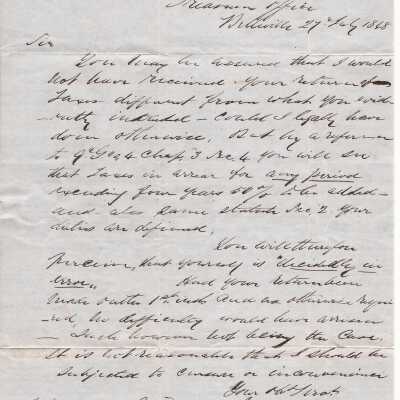 Treasurers Office
Belleville 27 July 1848
Sir
You may be assured that I would
not have received your return of
Taxes different from what you evid
-ently intended - could I legally have
done otherwise. But by a reference
to 9 Geo 4 Chap 3 Sec. 4 you will see
that Taxes in arrear for any period
exceeding four years 50 pct to be added -
and also same statute Sec. 2 Your
duties are defined.
You will thereupon
perceive, that yourself is "decidedly in
error"
Had your return been
made on the 1st and as otherwise requir
-ed, no difficulty would have arisen
- Such however not being the Case,
It is not reasonable that I should be
subjected to censure or inconvenience
Your Obt Servt